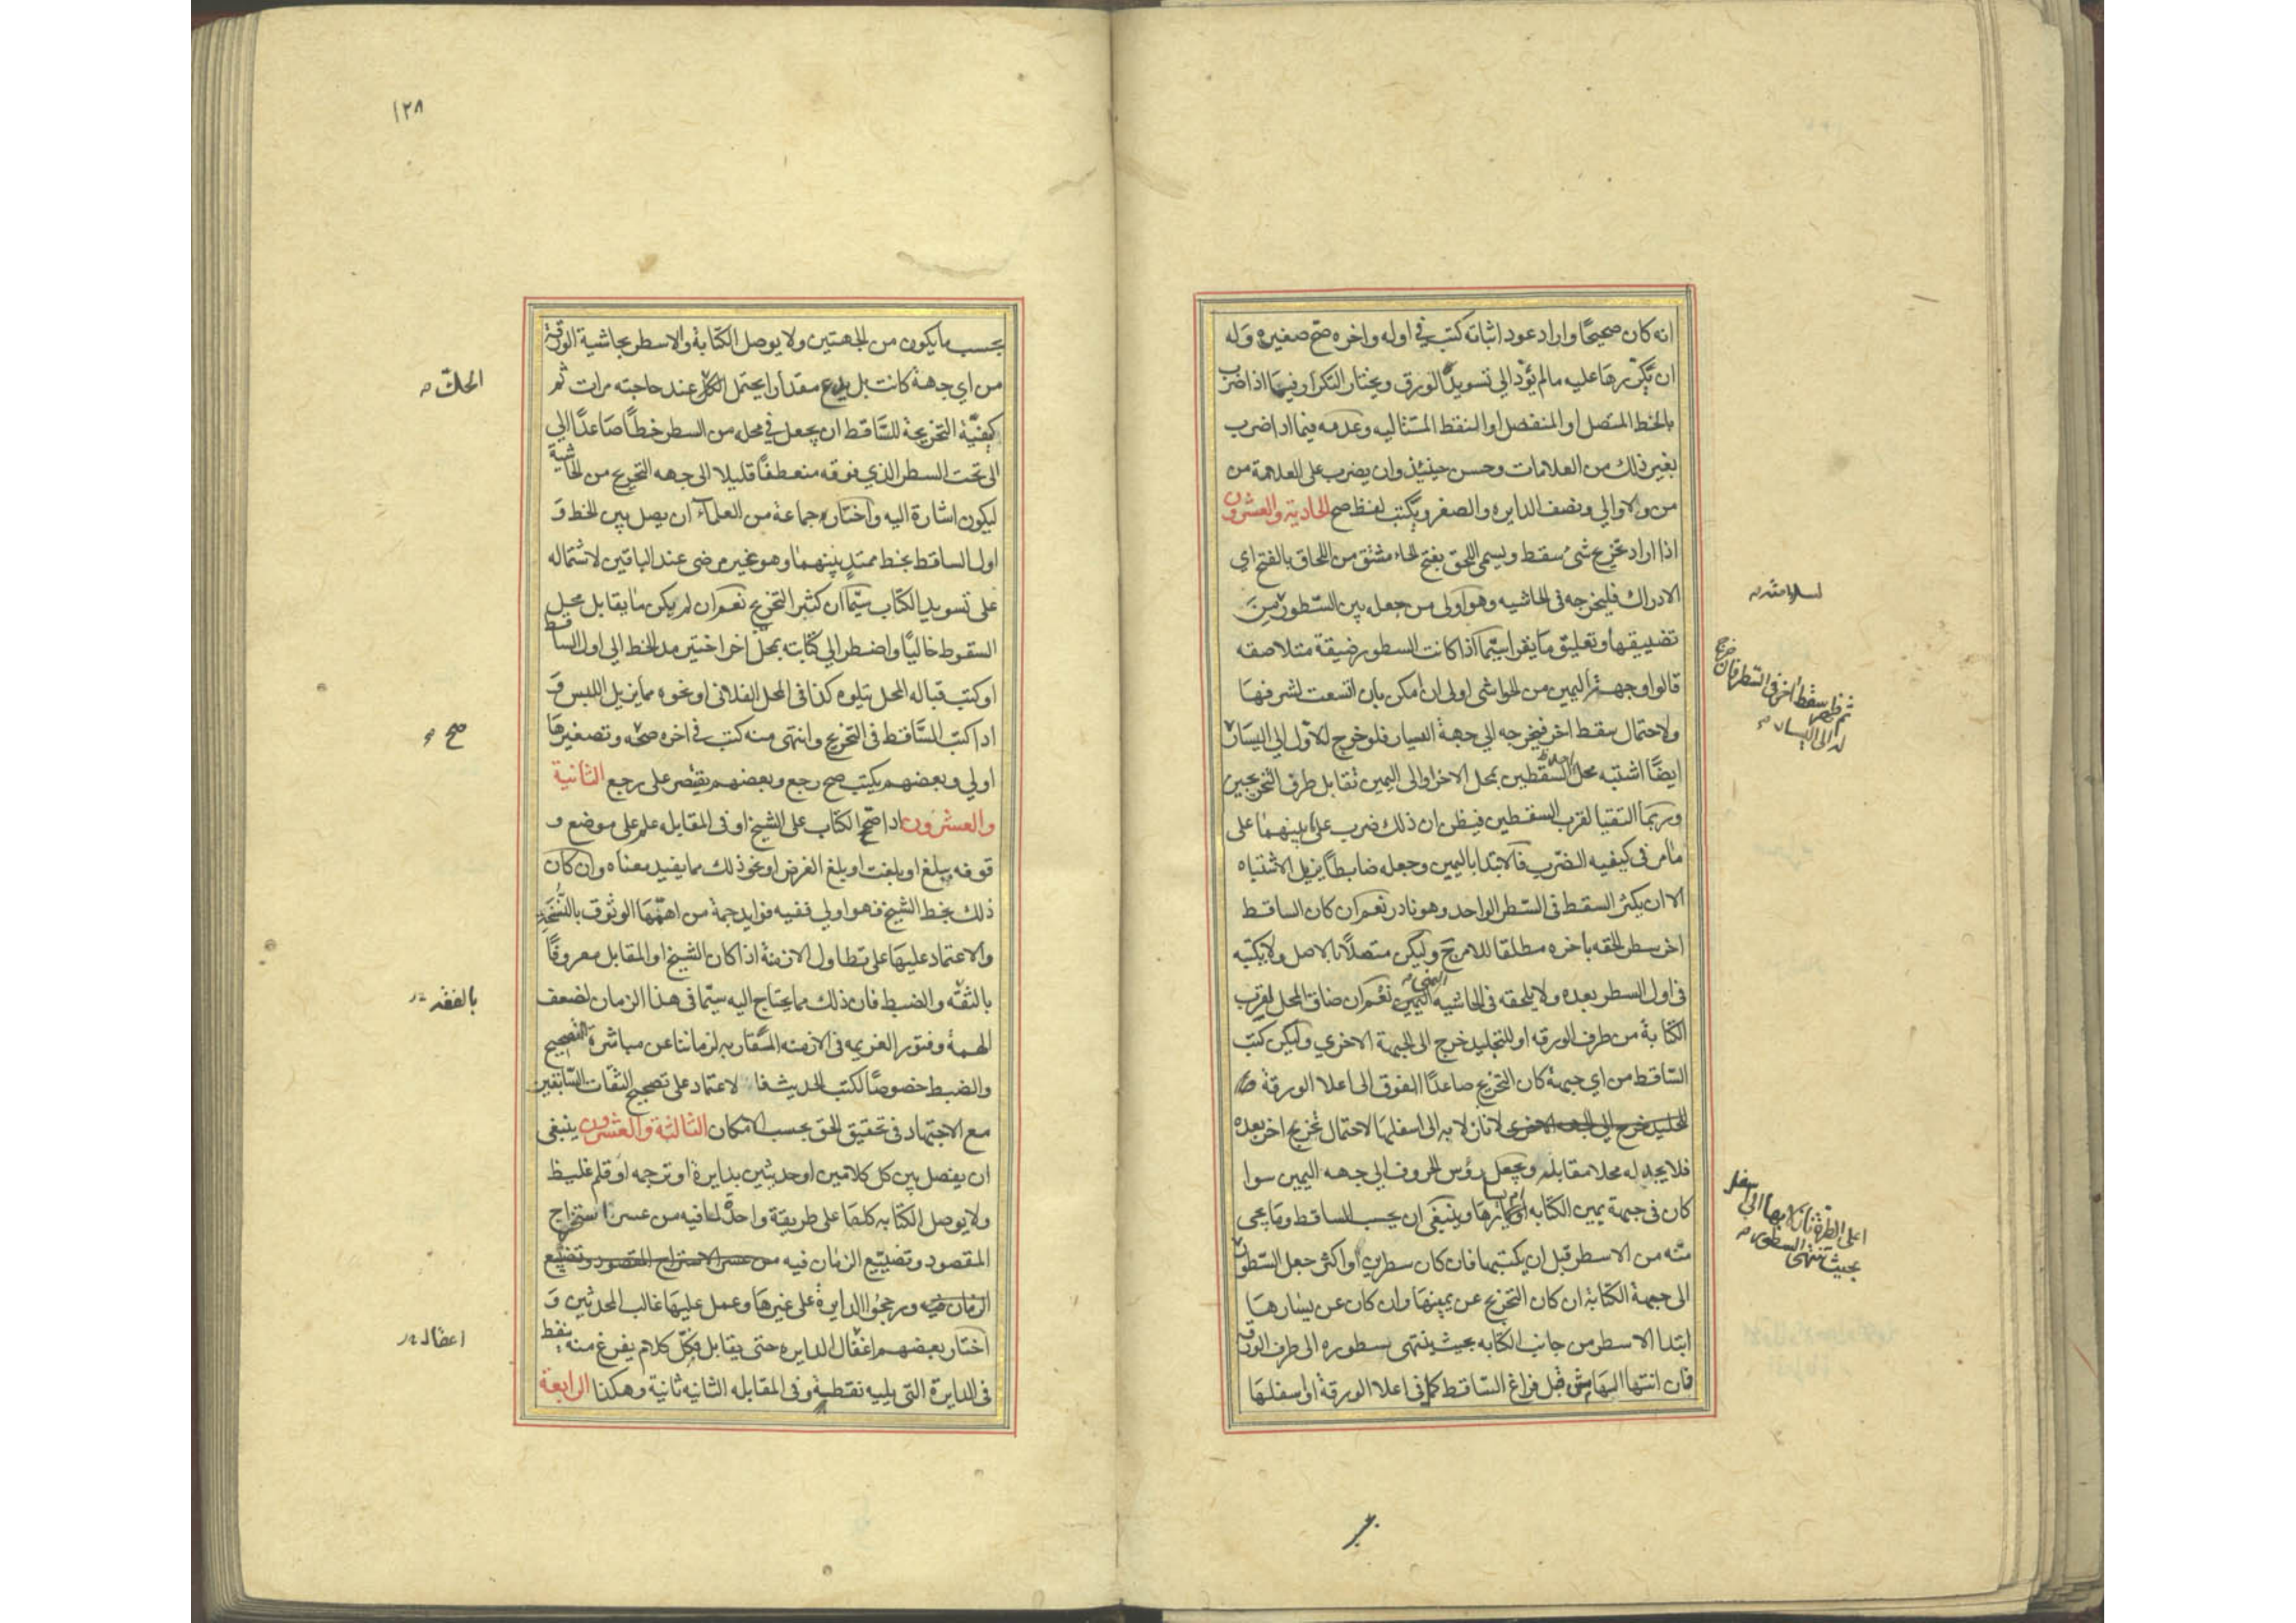 انه كان صحيحًا واراد عود اثباته كتب في اوله واخره صح صغيره وله
ان يكررها عليه مالم يؤد الي تسويد الورق ويختار التكرار فيما اذا ضرب
بالخط المتصل او المنفصل او النقط المتتاليه وعدمه فيما اذا ضرب
بغير ذلك من العلامات وحسن حينئذ وان يضرب على العلامة من
من والا والي ونصف الدايره والصفر ويكتب لفظ صح الحادية والعشرون
اذا اراد تخريج شئ سقط ويسمى اللحق بفتح الحاء مشتق من اللحاق بالفتح اي
الادراك فليخرجه في الحاشيه وهو اولى من جعله بين السطور من
تضييقها وتعليق ما يقرا سيما اذا كانت السطور ضيقة متلاصقه
قالوا وجهة اليمين من الحواشي اولى ان امكن بان اتسعت لشرفها
ولاحتمال سقط اخر فيخرجه الي جهة اليسار فلو خرج الاول الي اليسار
ايضًا اشتبه محل السقطين بمحل الاخر او الى اليمين تقابل طرف التخريجين
وربما التقيا لقرب السقطين فيظن ان ذلك ضرب على ما بينهما على
ما مر في كيفيه الضرب فالابتدا باليمين وجعله ضابطًا يزيل الاشتباه
الا ان يكثر السقط في السطر الواحد وهو نادر نعم ان كان الساقط
اخر سطر الحقه باخره مطلقا للامن وليكن متصلًا بالاصل ولا يكتبه
في اول السطر بعده ولا يلحقه في الحاشيه اليمين اليمنى نعم ان ضاق المحل لقرب
الكتابة من طرف الورقه او للتجليد خرج الى الجهة الاخري وليكن كتب
الساقط من اي جهة كان التخريج صاعدًا الفوق الى اعلا الورقة
للتجليد خرج الى الجهة الاخرى لا نازلا به الى اسفلها لاحتمال تخريج اخر بعده
فلا يجد له محلا مقابله ويجعل رؤس الحروف الي جهه اليمين سوا
كان في جهة يمين الكتابه او يسارها وينبغي ان يحسب الساقط وما يجي
منه من الاسطر قبل ان يكتبها فان كان سطرين او اكثر جعل السطور
الى جهة الكتابة ان كان التخريج عن يمينها وان كان عن يسارها
ابتدا الاسطر من جانب الكتابه بحيث ينتهى سطوره الى طرف الورقه
فان انتها اليها قبل فراغ الساقط كما في اعلا الورقة او اسفلها
ثم ظهر سقط اخر في السطر فان خرج
له الى اليسار
اعلى الطرة نازلا بها الى اسفل
بحيث تنتهي السطور
١٢٨
بحسب ما يكون من الجهتين ولا يوصل الكتابة والاسطر بحاشية الورقة
من اي جهة كانت بل يدع مقدارا يحتمل الحك عند حاجته مرات ثم
كيفية التخريجة للساقط ان يجعل في محله من السطر خطًا صاعدًا الي
الى تحت السطر الذي فوقه منعطفًا قليلا الى جهه التخريج من الحاشية
ليكون اشارة اليه واختاره جماعة من العلماء ان يصل بين الخط و
اول الساقط بخط ممتد بينهما وهو غير مرضى عند الباقين لاشتماله
على تسويد الكتاب سيما ان كثير التخريج نعم ان لم يكن ما يقابل محل
السقوط خاليًا واضطر الي كتابته بمحل اخر اختير مد الخط الي اول الساقط
او كتب قباله المحل يتلوه كذا في المحل الفلاني او نحوه مما يزيل اللبس و
اذا كتب الساقط في التخريج وانتهى منه كتب في اخره صحه وتصغيرها
اولي وبعضهم يكتب صح رجع وبعضهم يقتصر على رجع الثانية
والعشرون اذا صحح الكتاب على الشيخ او في المقابله علم على موضع و
قوفه ببلغ او بلغت او بلغ العرض او نحو ذلك مما يفيد معناه وان كان
ذلك بخط الشيخ فهو اولي ففيه فوايد جمة من اهمها الوثوق بالنسخة
والاعتماد عليها على تطاول الازمنة اذا كان الشيخ او المقابل معروفًا
بالثقه والضبط فان ذلك مما يحتاج اليه سيما في هذا الزمان لضعف
الهمة وفتور العزيمه في الازمنه المتقاربه لزماننا عن مباشرة التصحيح
والضبط خصوصًا لكتب الحديث فا لاعتماد على تصحيح الثقات السابقين
مع الاجتهاد في تحقيق الحق بحسب الامكان الثالثة والعشرون ينبغى
ان يفصل بين كل كلامين او حديثين بدايرة او ترجمه او قلم غليظ
ولا يوصل الكتابه كلها على طريقة واحدة لما فيه من عسر استخراج
المقصود وتضييع الزمان فيه من عسر الاستخراج المقصود وتضييع
الزمان فيه ورجحوا الدايرة على غيرها وعمل عليها غالب المحدثين و
اختار بعضهم اغفال الدايره حتى يقابل فكل كلام يفرغ منه ينقط
في الدايرة التي يليه نقطة وفي المقابله الثانيه ثانية وهكذا الرابعة
الحك
صح